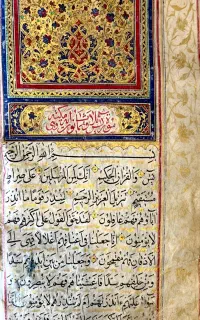 بسم الله الرحمن الرحيم
يس والقرآن الحكيم انك لمن المرسلين على صراط
مستقيم تنزيل العزيز الرحيم لتنذر قوما ما انذر
آباؤهم فهم غافلون لقد حق القول على اكثرهم فهم
لا يؤمنون انا جعلنا في اعناقهم اغلالا فهي الى
الاذقان فهم مقمحون وجعلنا من بين ايديهم سدا
ومن خلفهم سدا فاغشيناهم فهم لا يبصرون و
سواء عليهم ءانذرتهم ام لم تنذرهم لا يؤمنون